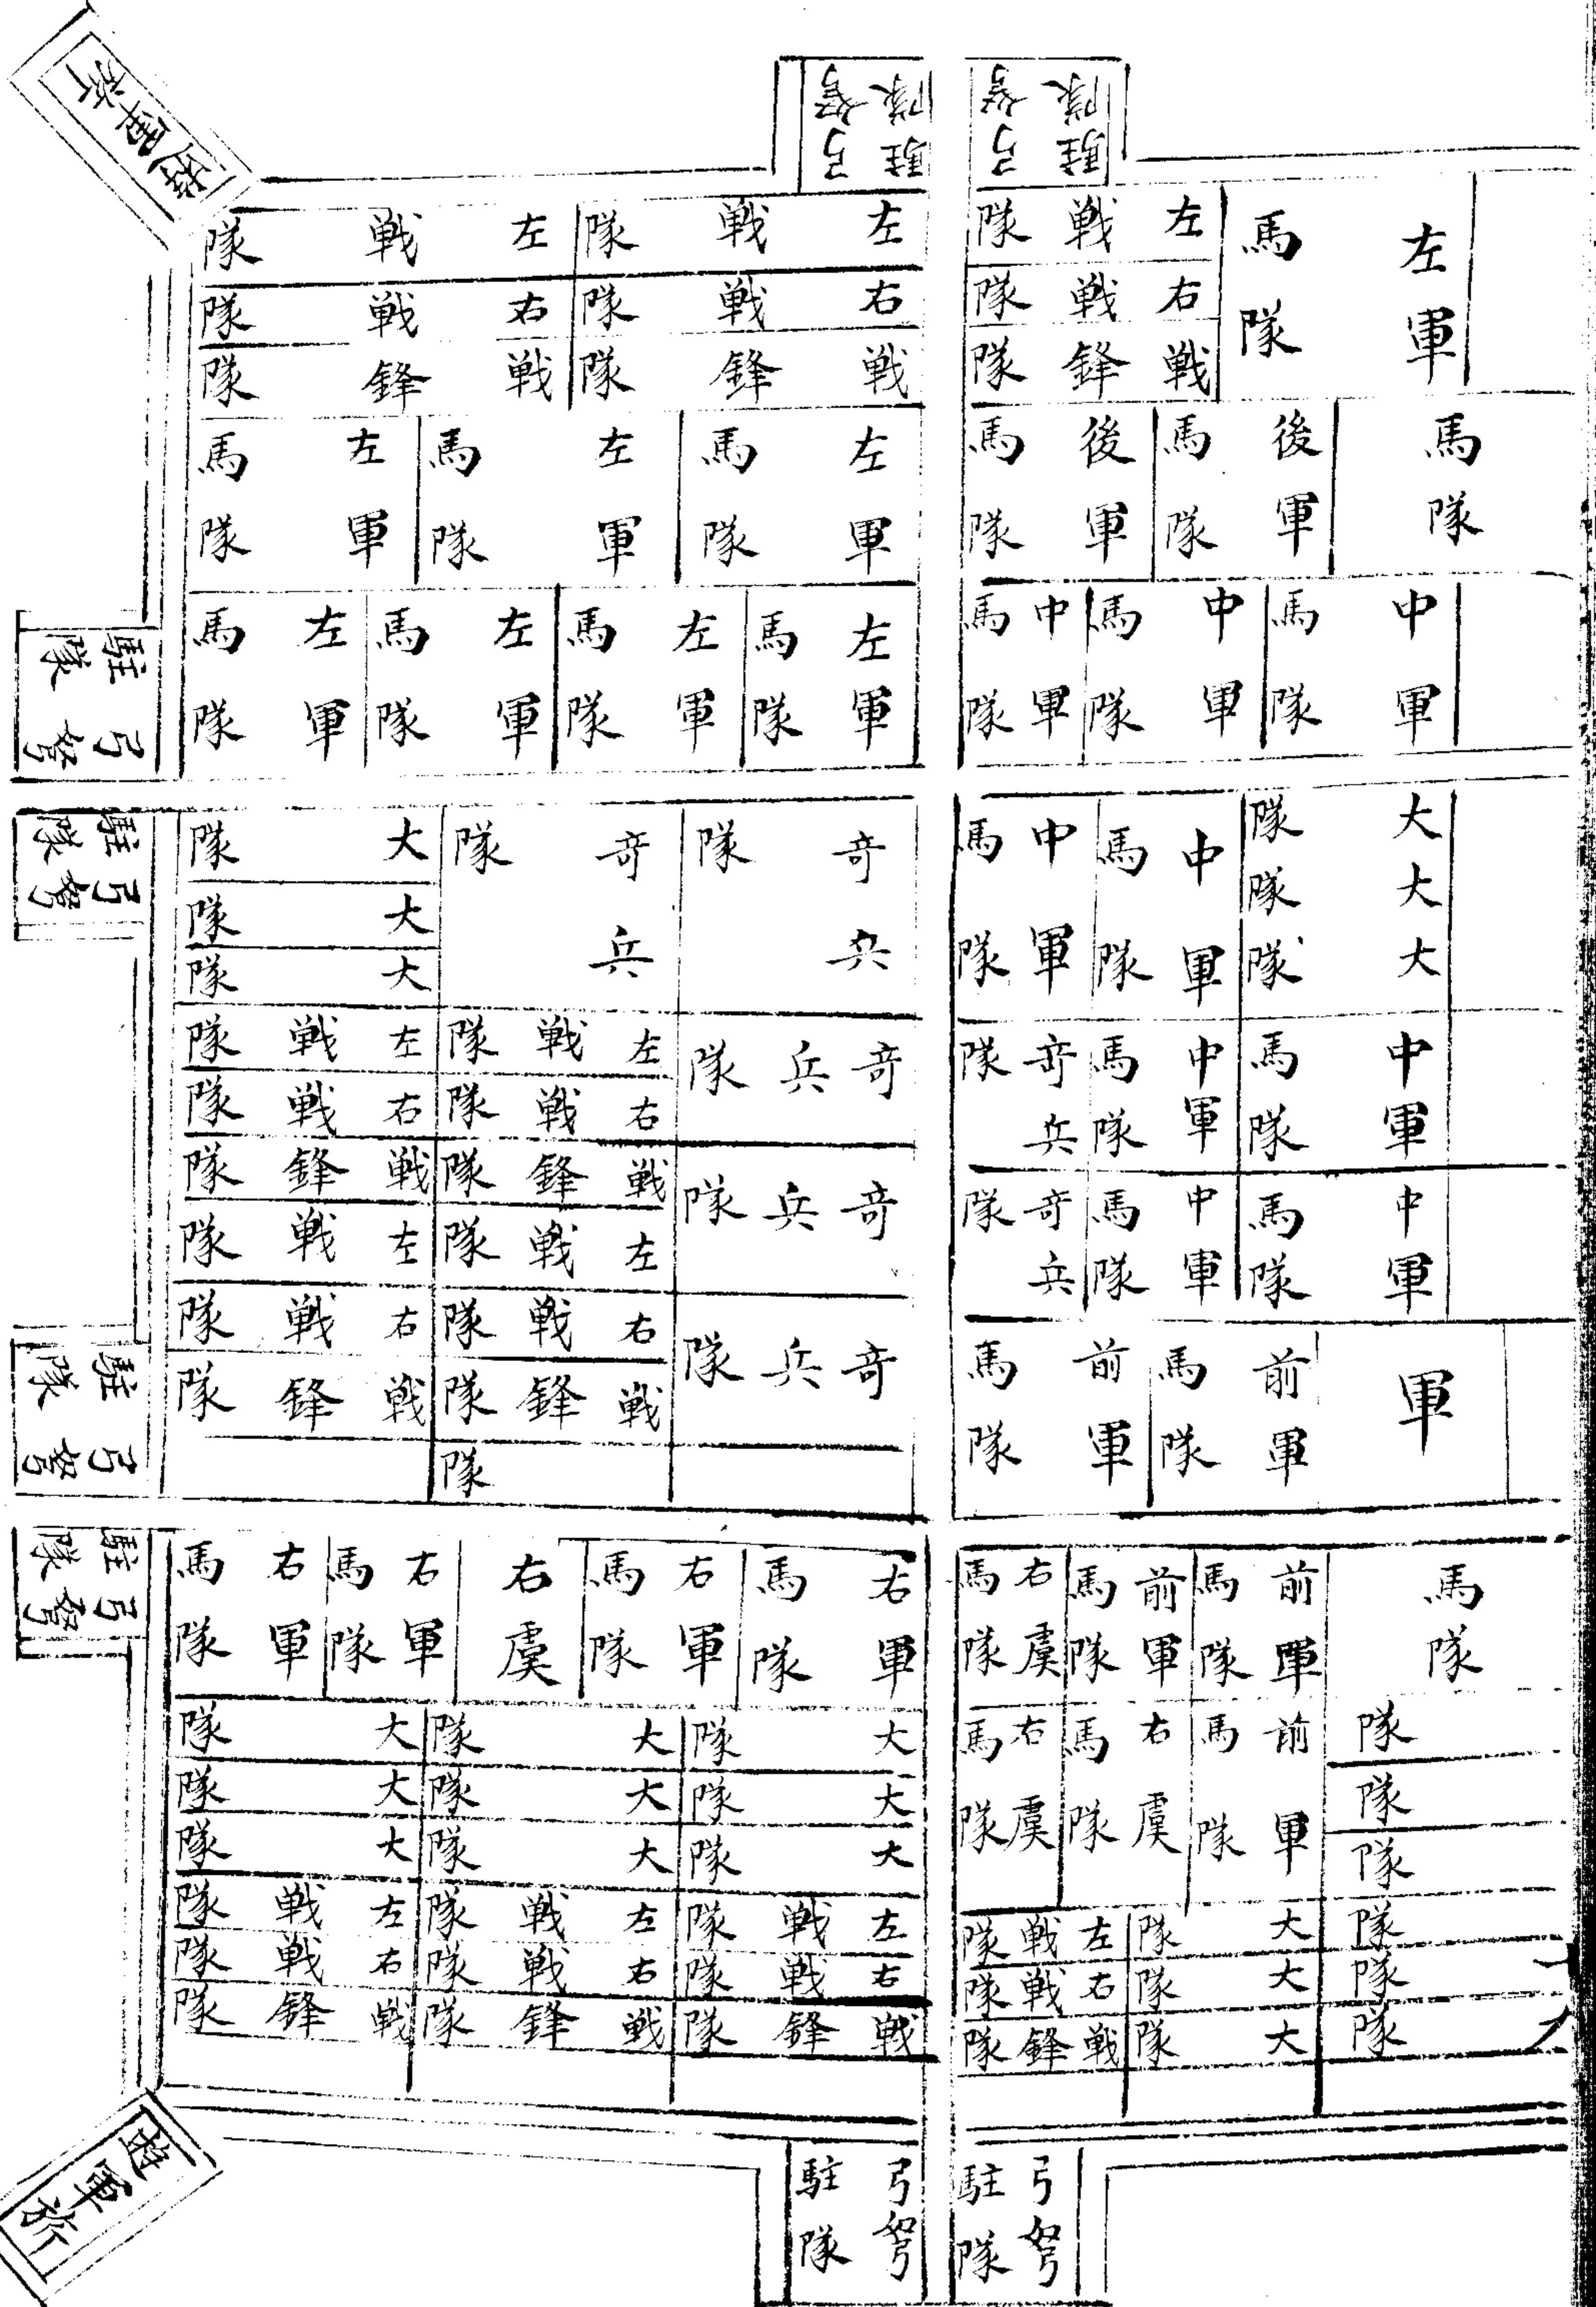 遊軍
弓弩
駐隊
弓弩
駐隊
左軍
馬隊
左戰隊
右戰隊
戰鋒隊
左戰隊
右戰隊
戰鋒隊
左戰隊
右戰隊
戰鋒隊
馬隊
後軍
馬隊
後軍
馬隊
左軍
馬隊
左軍
馬隊
左軍
馬隊
中軍
馬隊
中軍
馬隊
中軍
馬隊
左軍
馬隊
左軍
馬隊
左軍
馬隊
左軍
馬隊
弓弩
駐隊
大隊
大隊
大隊
中軍
馬隊
中軍
馬隊
奇兵
隊
奇兵
隊
大隊
大隊
大隊
弓弩
駐隊
中軍
馬隊
中軍
馬隊
奇兵
隊
奇兵隊
左戰隊
右戰隊
戰鋒隊
左戰隊
右戰隊
戰鋒隊
中軍
馬隊
中軍
馬隊
奇兵
隊
奇兵隊
左戰隊
右戰隊
戰鋒隊
左戰隊
右戰隊
戰鋒隊
軍
前軍
馬隊
前軍
馬隊
奇兵隊
隊
弓弩
駐隊
馬隊
前軍
馬隊
前軍
馬隊
右虞
馬隊
右軍
馬隊
右軍
馬隊
右虞
右軍
馬隊
右軍
馬隊
弓弩
駐隊
隊
隊
隊
前軍
馬隊
右虞
馬隊
右虞
馬隊
大隊
大隊
大隊
大隊
大隊
大隊
大隊
大隊
大隊
隊
隊
隊
大隊
大隊
大隊
左戰隊
右戰隊
戰鋒隊
左戰隊
右戰隊
戰鋒隊
左戰隊
右戰隊
戰鋒隊
左戰隊
右戰隊
戰鋒隊
弓弩
駐隊
弓弩
駐隊
遊軍